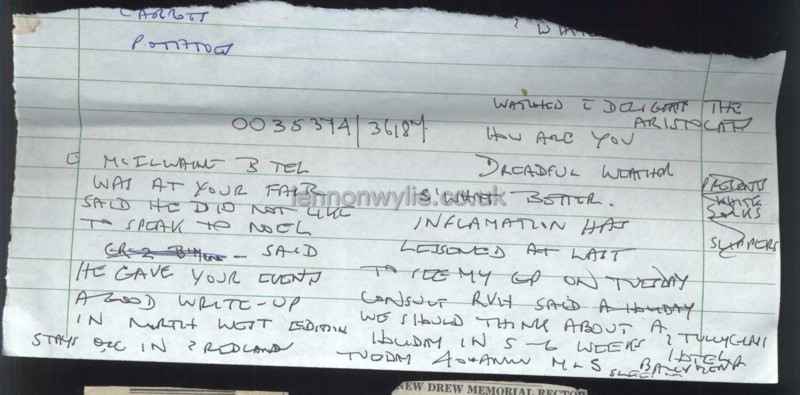 CARROTS
POTATOES
? WHAT
WATCHED E DELIGHT THE
ARISTOCATS
0035374/36187
HOW ARE YOU
E MCILWAINE B TEL
WAS AT YOUR FAIR
SAID HE DID NOT LIKE
TO SPEAK TO NOEL
SAID
HE GAVE YOUR EVENTS
A GOOD WRITE-UP
IN NORTH WEST EDITION
STAYS IN ? REDLAND
DREADFUL WEATHER
S'WHAT BETTER.
INFLAMATION HAS
LESSONED AT LAST
TO SEE MY GP ON TUESDAY
CONSULT RVH SAID A HOLIDAY
WE SHOULD THINK ABOUT A
HOLIDAY IN 5-6 WEEKS
TUESDAY M & S
PRESENTS
WHITE
SOCKS
SLIPPERS
? TULLYGLASS
HOTEL
BALLYMENA
lennonwylie.co.uk
NEW DREW MEMORIAL RECTOR